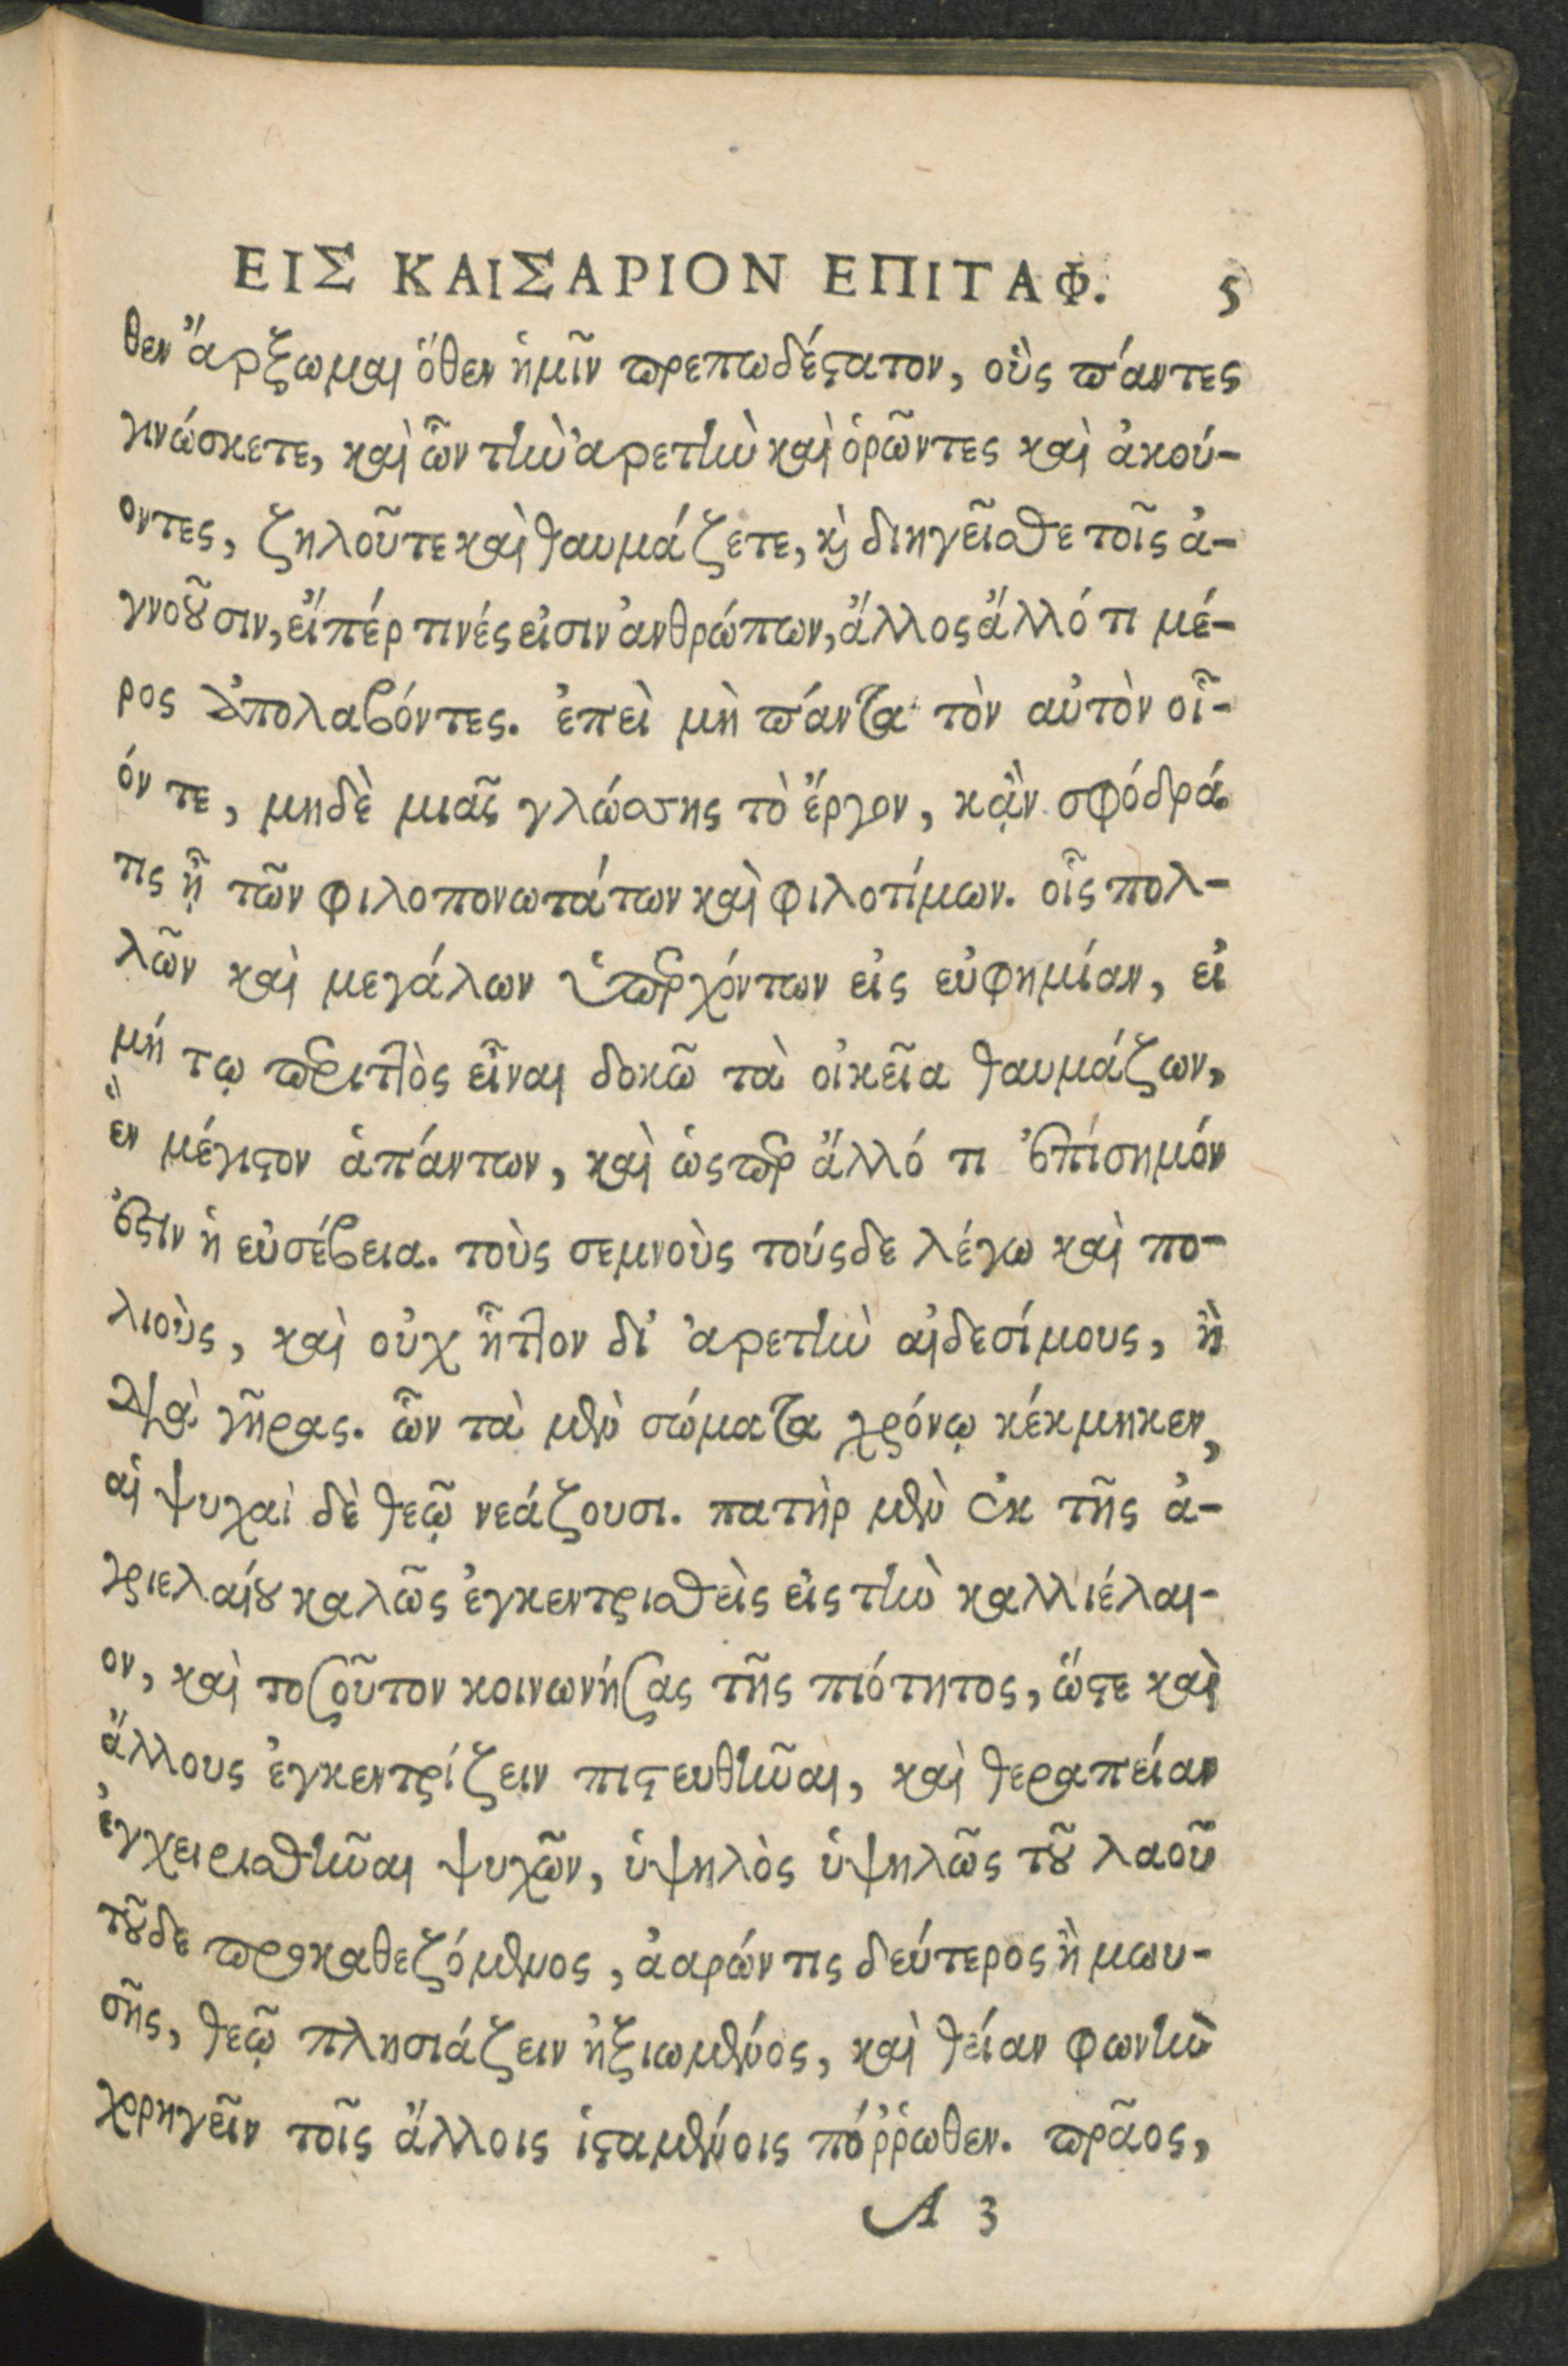 ΕΙΣ ΚΑΙΣΑΡΙΟΝ ΕΠΙΤΑΦ. 5
θεν ἄρξωμαι ὅθεν ἡμῖν πρεπωδέςατον, οὓς πάντες
γινώσκετε, καὶ ὧν τὴν ἀρετὴν καὶ ὁρῶντες καὶ ἀκού-
οντες, ζηλοῦτε καὶ θαυμάζετε, καὶ διηγεῖσθε τοῖς ἀ-
γνοοῦσιν, εἴπέρ τινές εἰσιν ἀνθρώπων, ἄλλος ἄλλό τι μέ-
ρος ἀπολαβόντες. ἐπεὶ μὴ πάντα τὸν αὐτὸν οἷ-
όν τε, μηδὲ μιᾶς γλώσσης τὸ ἔργον, κᾂν σφόδρά
τις ᾖ τῶν φιλοπονωτάτων καὶ φιλοτίμων. οἷς πολ-
λῶν καὶ μεγάλων ὑπαρχόντων εἰς εὐφημίαν, εἰ
μή τῳ περιττὸς εἶναι δοκῶ τὰ οἰκεῖα θαυμάζων,
ἓν μέγιςον ἁπάντων, καὶ ὥςπερ ἄλλό τι ἐπίσημόν
ἐςιν ἡ εὐσέβεια. τοὺς σεμνοὺς τούςδε λέγω καὶ πο-
λιοὺς, καὶ οὐχ ἧττον δι' ἀρετὴν αἰδεσίμους, ἢ
διὰ γῆρας. ὧν τὰ μὲν σώματα χρόνῳ κέκμηκεν,
αἱ ψυχαὶ δὲ θεῷ νεάζουσι. πατὴρ μὲν ἐκ τῆς ἀ-
γριελαίου καλῶς ἐγκεντρισθεὶς εἰς τὴν καλλιέλαι-
ον, καὶ τοσοῦτον κοινωνήσας τῆς πιότητος, ὥςε καὶ
ἄλλους ἐγκεντρίζειν πιςευθῆναι, καὶ θεραπείαν
ἐγχειρισθῆναι ψυχῶν, ὑψηλὸς ὑψηλῶς τοῦ λαοῦ
τοῦδε προκαθεζόμενος, ἀαρών τις δεύτερος ἢ μωυ-
σῆς, θεῷ πλησιάζειν ἠξιωμένος, καὶ θείαν φωνὴν
χορηγεῖν τοῖς ἄλλοις ἱςαμένοις πόῤῥωθεν. πρᾶος,
A 3